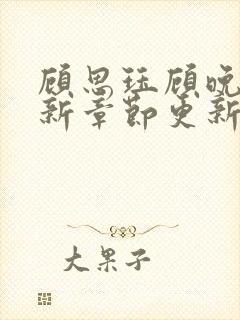 顾思珏顾晚
新章节更新
大果子